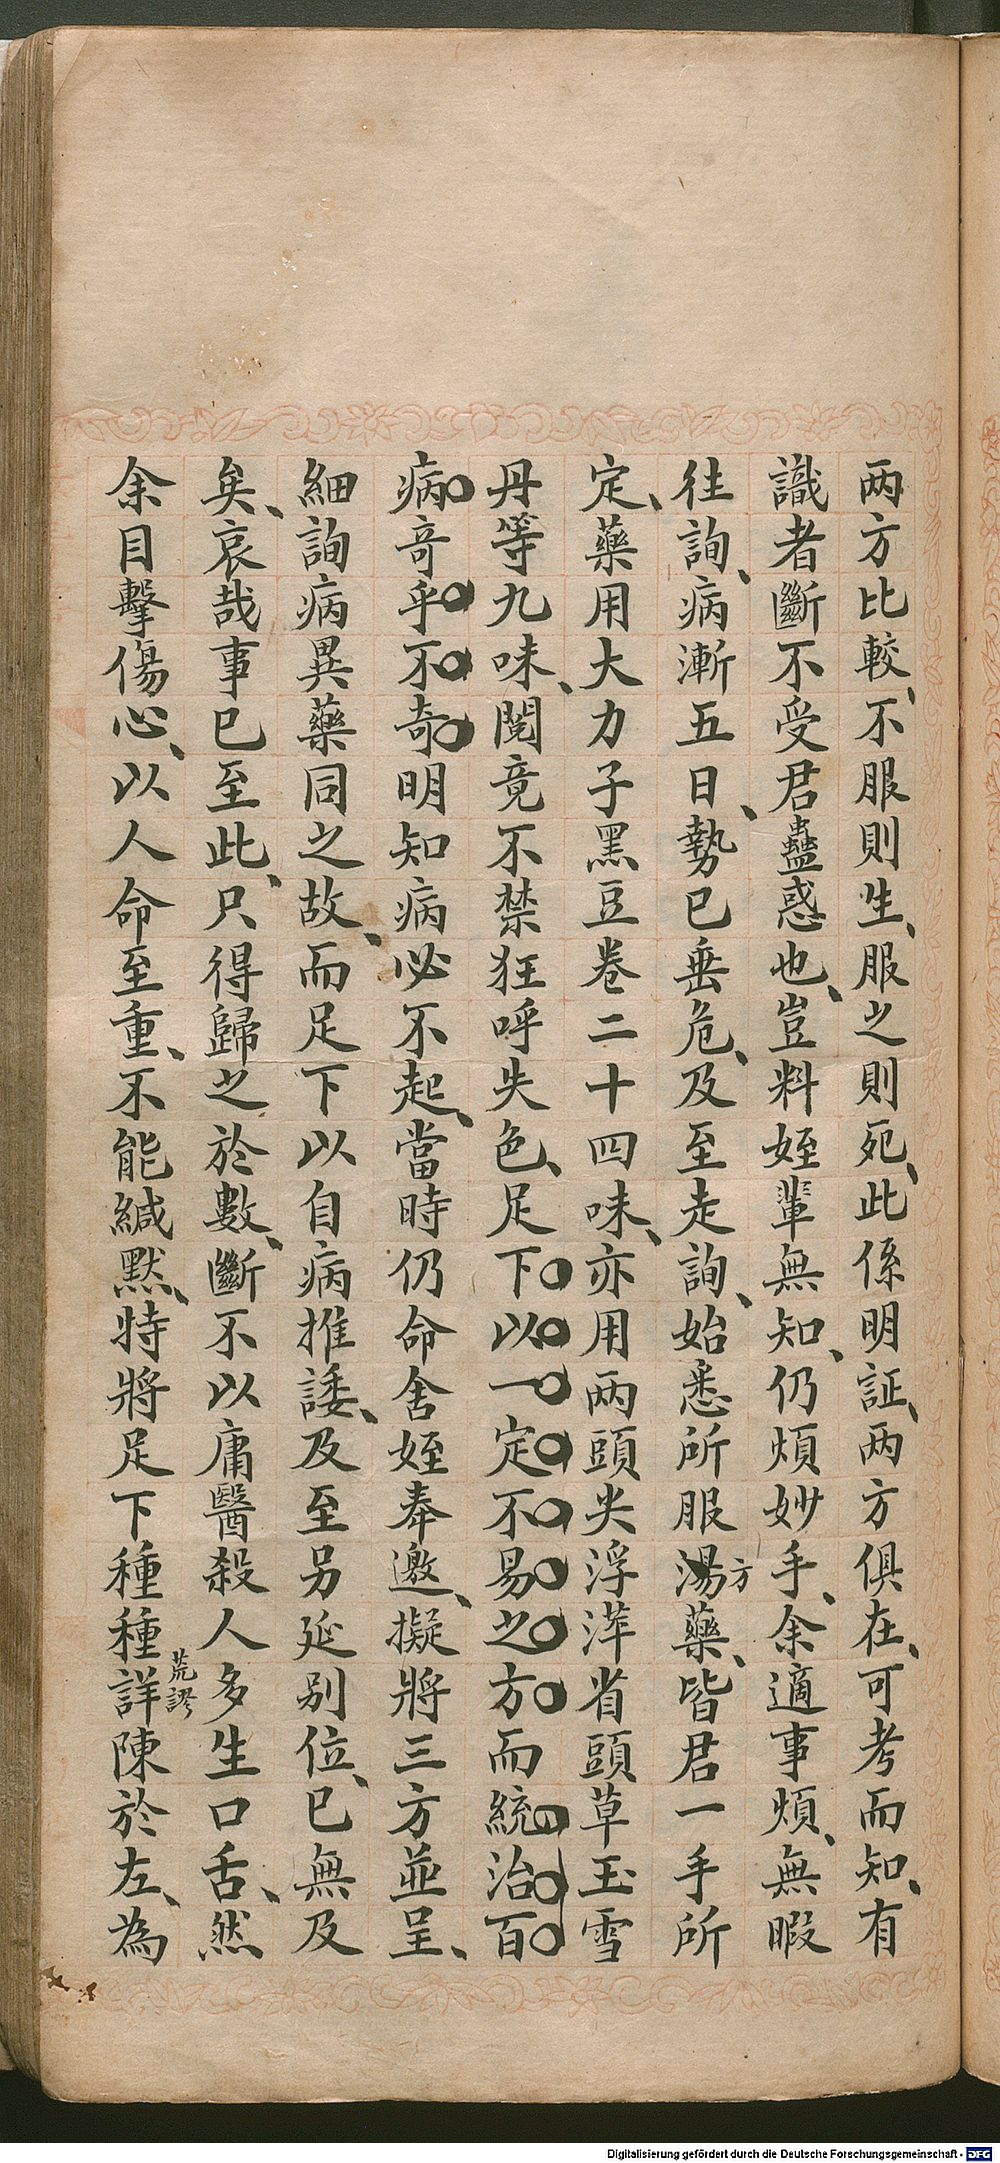 两方比較、不服則生、服之則死、此係明証、两方俱在、可考而知、有
識者斷不受君蠱惑也、豈料姪輩無知、仍煩妙手、余適事煩、無暇
往詢、病漸五日、勢已垂危、及至走詢、始悉所服湯方藥、皆君一手所
定、藥用大力子黑豆卷二十四味、亦用两頭尖浮萍省頭草玉雪
丹等九味、閱竟不禁狂呼失色、足下以一定不易之方而統治百
病奇乎不奇明知病必不起、當時仍命舍姪奉邀、擬將三方並呈、
細詢病異藥同之故、而足下以自病推諉、及至另延别位、已無及
矣、哀哉事已至此、只得歸之於數、斷不以庸醫殺人多生口舌、然
余目擊傷心、以人命至重、不能緘默、特將足下種種荒謬詳陳於左、為
Digitalisierung gefördert durch die Deutsche Forschungsgemeinschaft - DFG